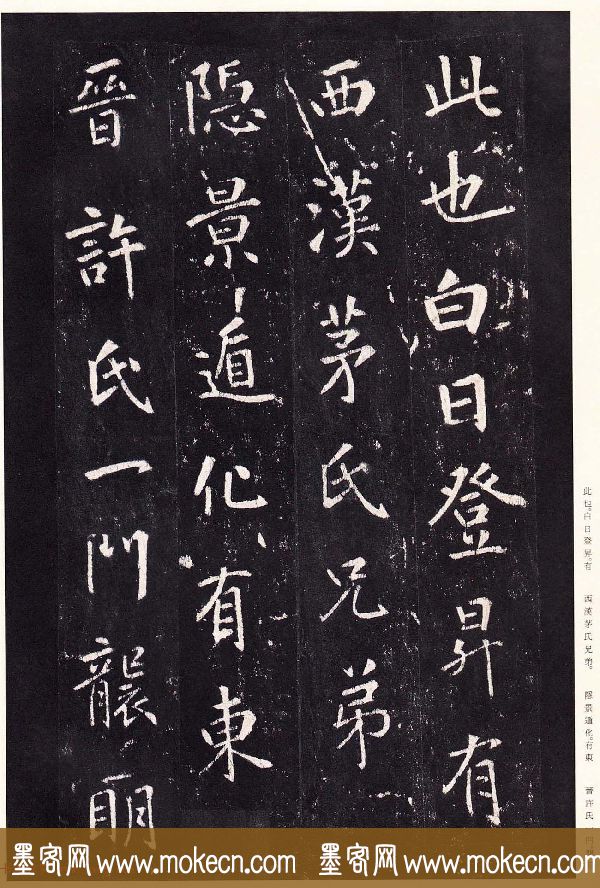 此也白日登昇有
西漢茅氏兄弟
隱景遁化有東
晉許氏一門襲明
此也。白日登昇。有 西漢茅氏兄弟。 隱景遁化。有東 晉許氏
墨客网 www.mokecn.com 墨客网 www.mokecn.com